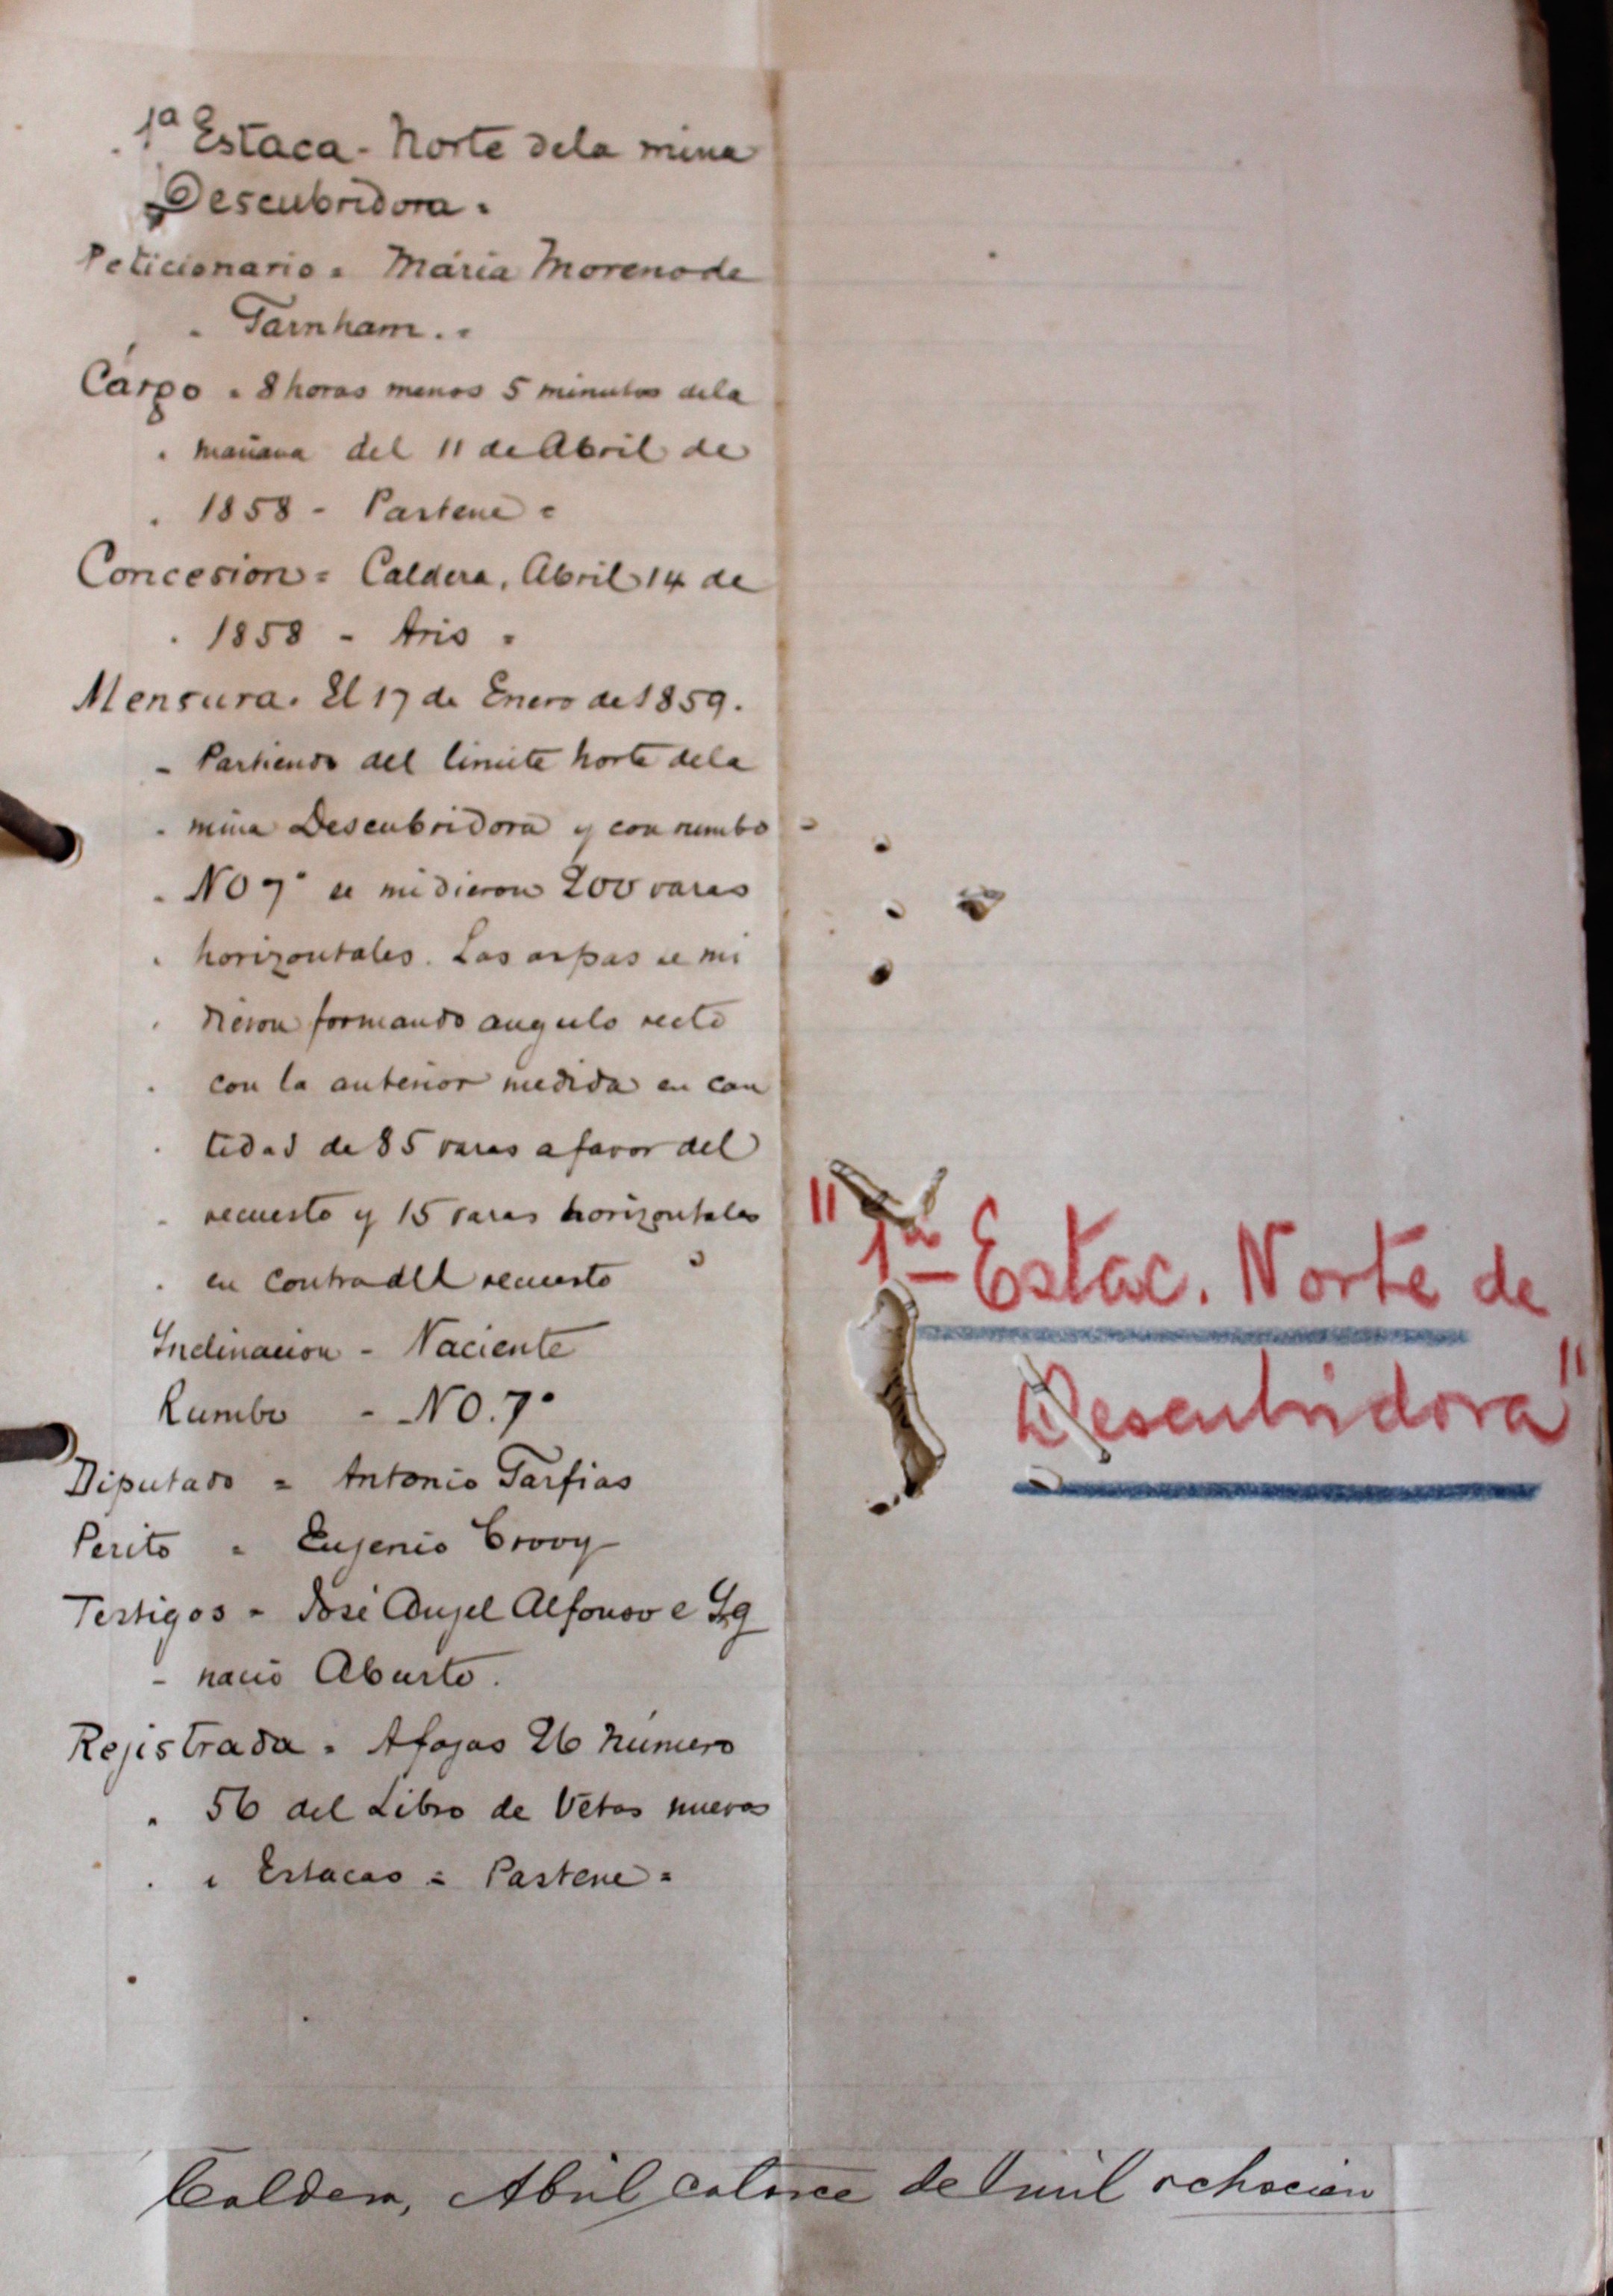 1ª Estaca - Norte dela mina
Descubridora.
Peticionario = Maria Moreno de
" Farnham. =
Cargo = 8 horas menos 5 minutos dela
" mañana del 11 de Abril de
" 1858 - Pastene =
Concesion = Caldera, Abril 14 de
" 1858 - Aris =
Mensura. El 17 de Enero de 1859.
- Partiendo del limite norte dela
" mina Descubridora y con rumbo -
" NO 7° se midieron 200 varas
" horizontales. Las aspas se mi
" dieron formando angulo recto
" con la anterior medida en can
" tidad de 85 varas a favor del
" recuesto y 15 varas horizontales
" en contra del recuesto
Inclinacion - Naciente
Rumbo - NO. 7°
Diputado = Antonio Garfias
Perito = Eugenio Crooy
Testigos = José Anjel Alfonso e Yg
- nacio Aburto.
Rejistrada = A fojas 26 número
" 56 del Libro de Vetas nuevas
" i Estacas = Pastene =
"1ª Estac. Norte de
Descubridora"
Caldera, Abril catorce de mil ochocien